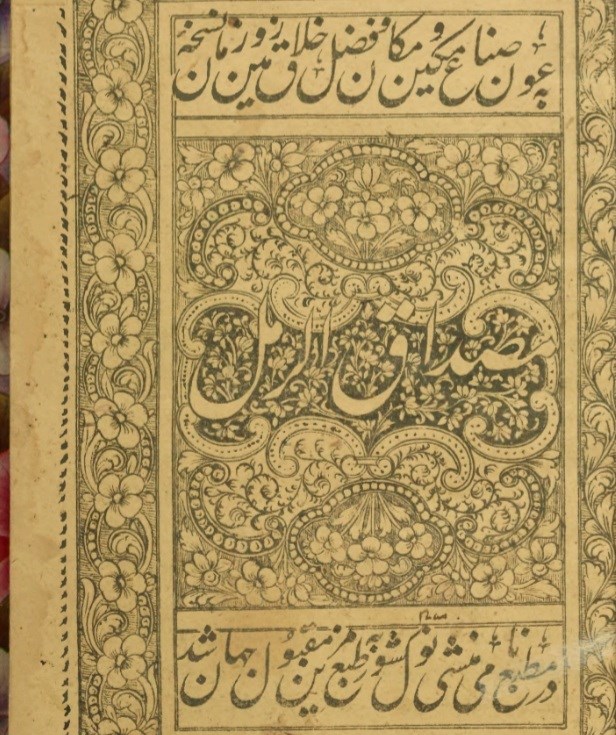 بعون صناع مکین و مکان و فضل خلاق زمین و زمان نسخہ
مصداق الرمل
در مطبع نامی منشی نولکشور بطبع مزین مقبول جهان شد